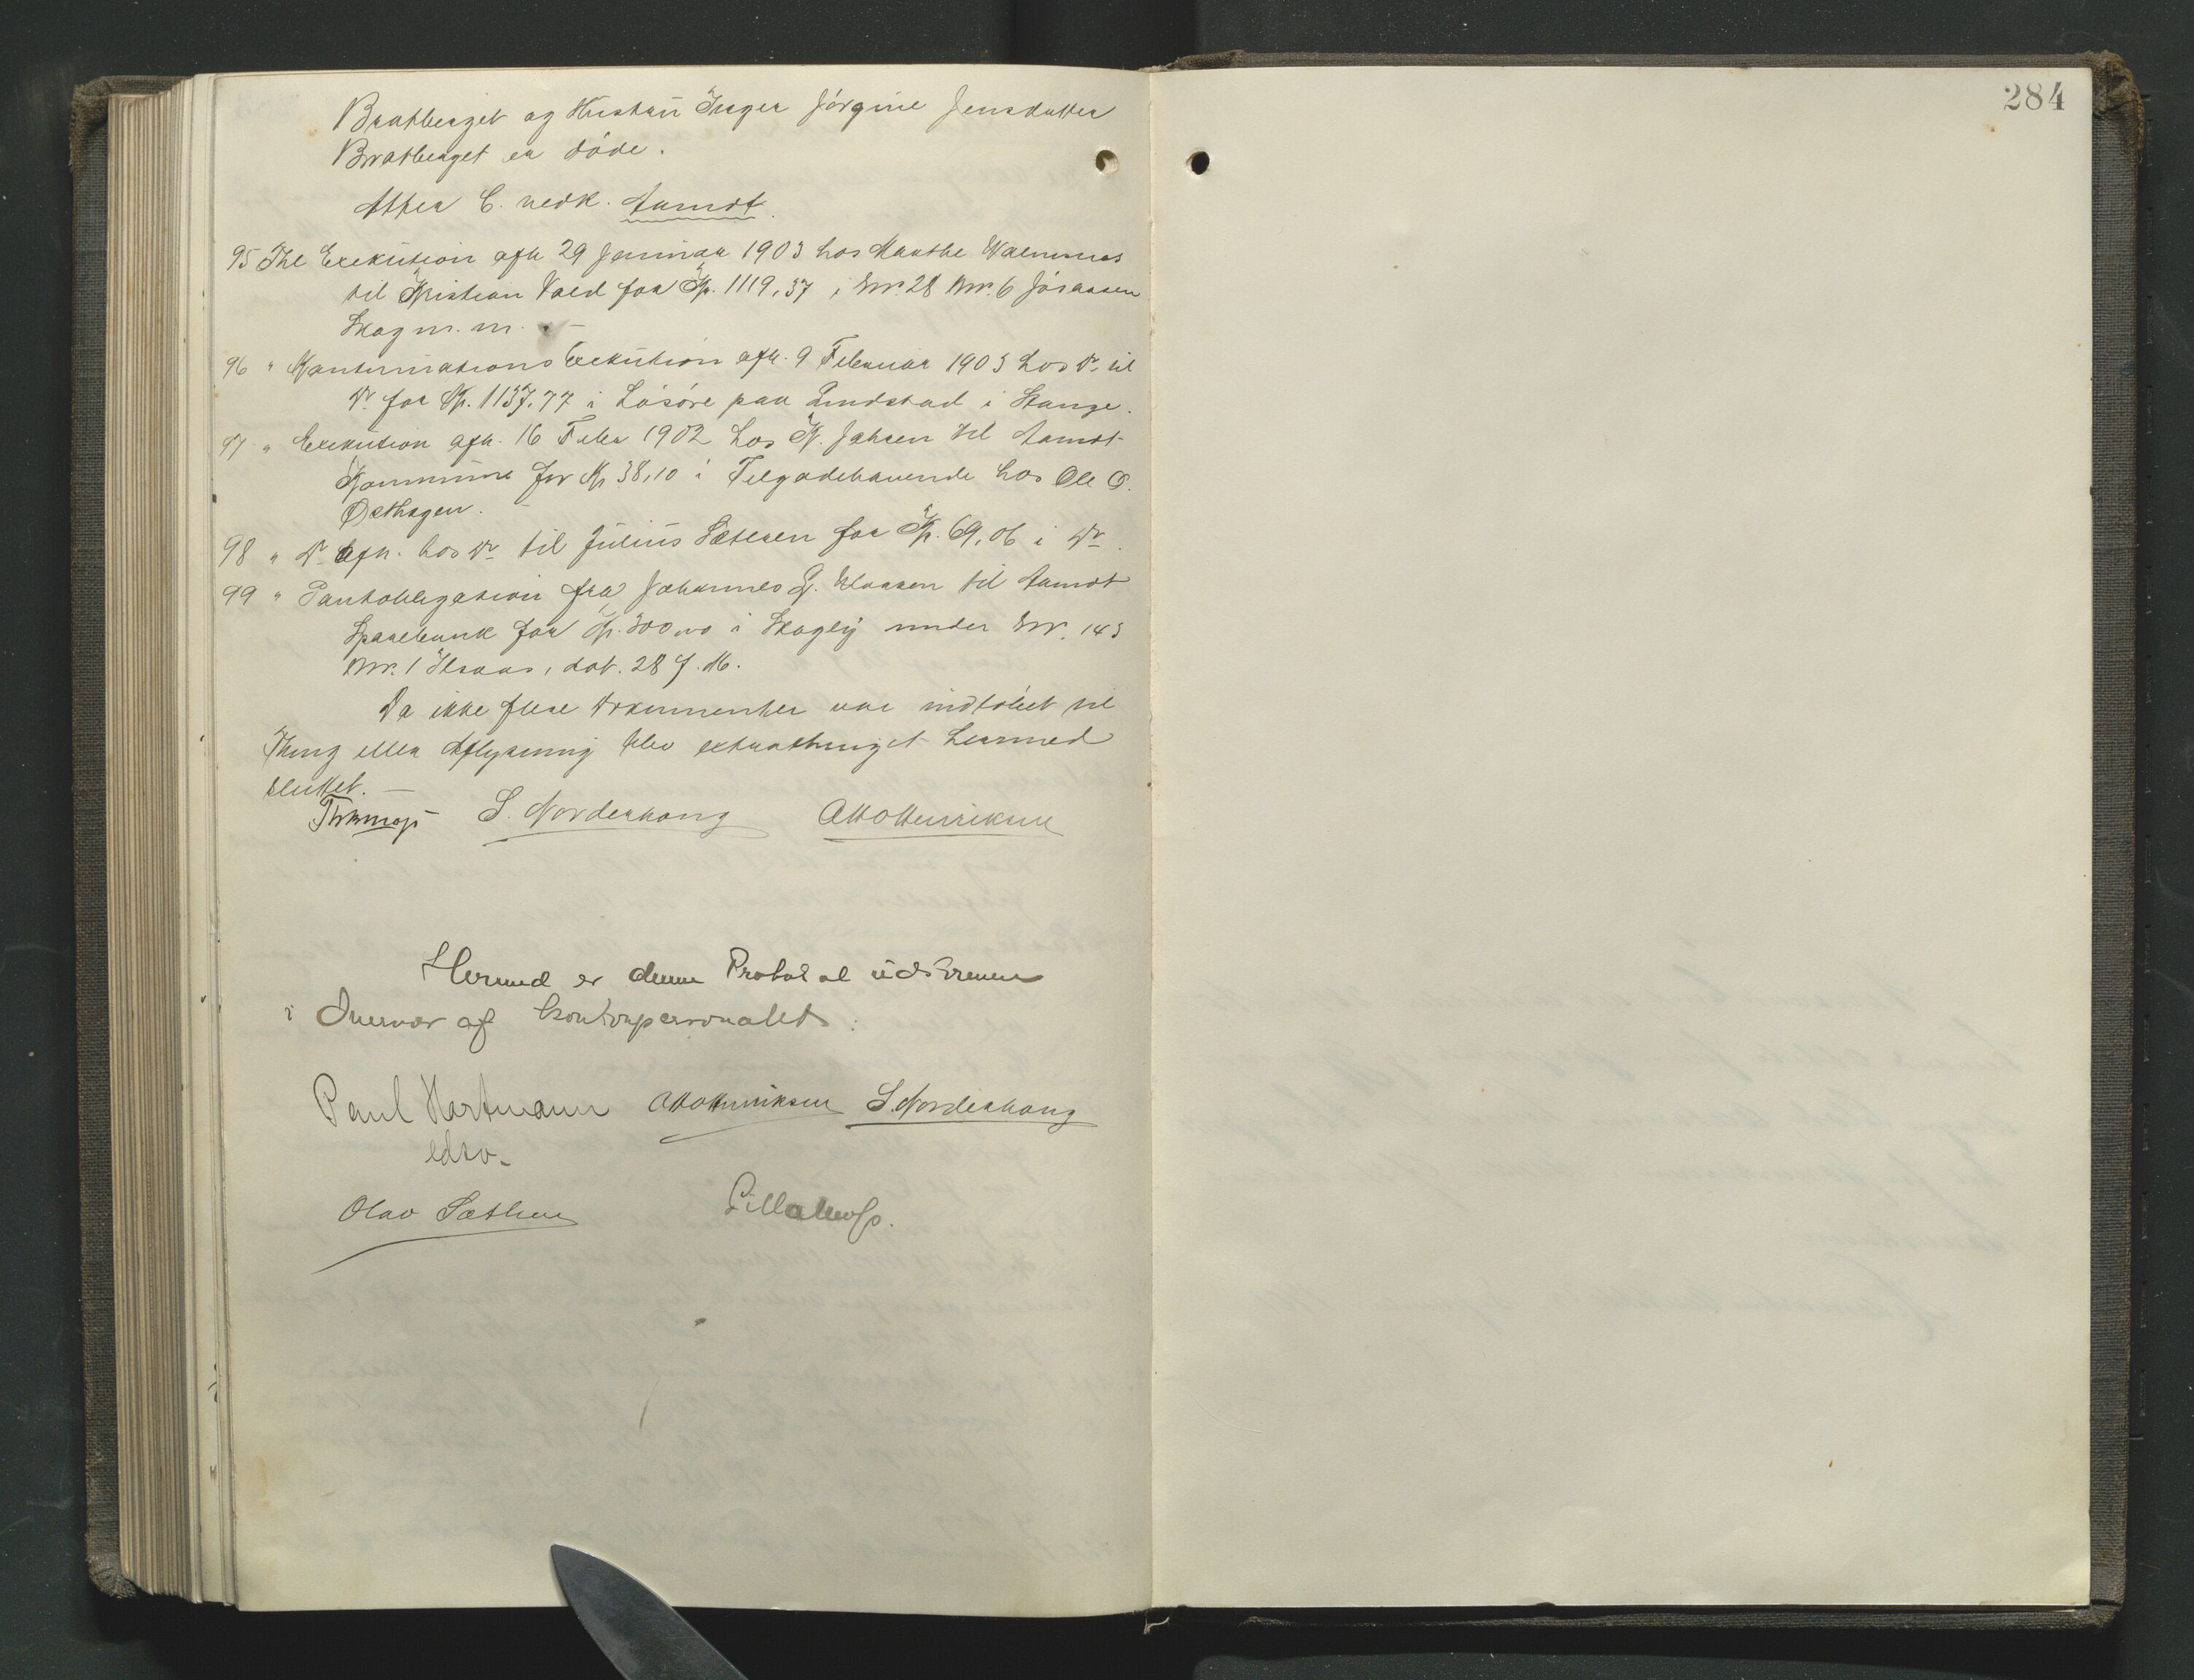 284
Bratberget og Hustru Inger Jörgine Jensdatter
Bratberget er döde.
Efter C. vedk. Aamot.
95 Thl Exekution afh 29 Januar 1903 hos Marthe Wærnnes
til Kristian Vold for Kr. 1119,37 i Gnr. 28 Bnr. 6
Skog m. m. –
96 " Exekution afh. 9 Februar 1903 hos Do til
Do for Kr. 1137,77 i Lösöre paa Lindstad i Stange.
97 " Exekution afh. 16 Febr 1902 hos K. Jahren til Aamot
Kommune for Kr 38,10 i Tilgodehavende hos Ole O.
Østhagen. –
98 " Do afh. hos Do til Julius Sætersen for Kr. 69,06 i Do.
99 " Pantobligation fra Johannes G. Klaasen til Aamot
Sparebank for Kr. 300,00 i Skogly under Gnr. 143
Bnr. 1 Ilsaas, dat. 28 f. M.
Da ikke flere Dokumenter var indlöbet til
Thing eller Aflysning blev extrathinget hermed
sluttet. –
S. Norderhaug Otto Henriksen
Hermed er denne Protokol udskreven
i Nærvær af Kontorpersonalet:
Paul Hartmann Otto Henriksen S. Norderhaug
edsv.
Olav Sæthren